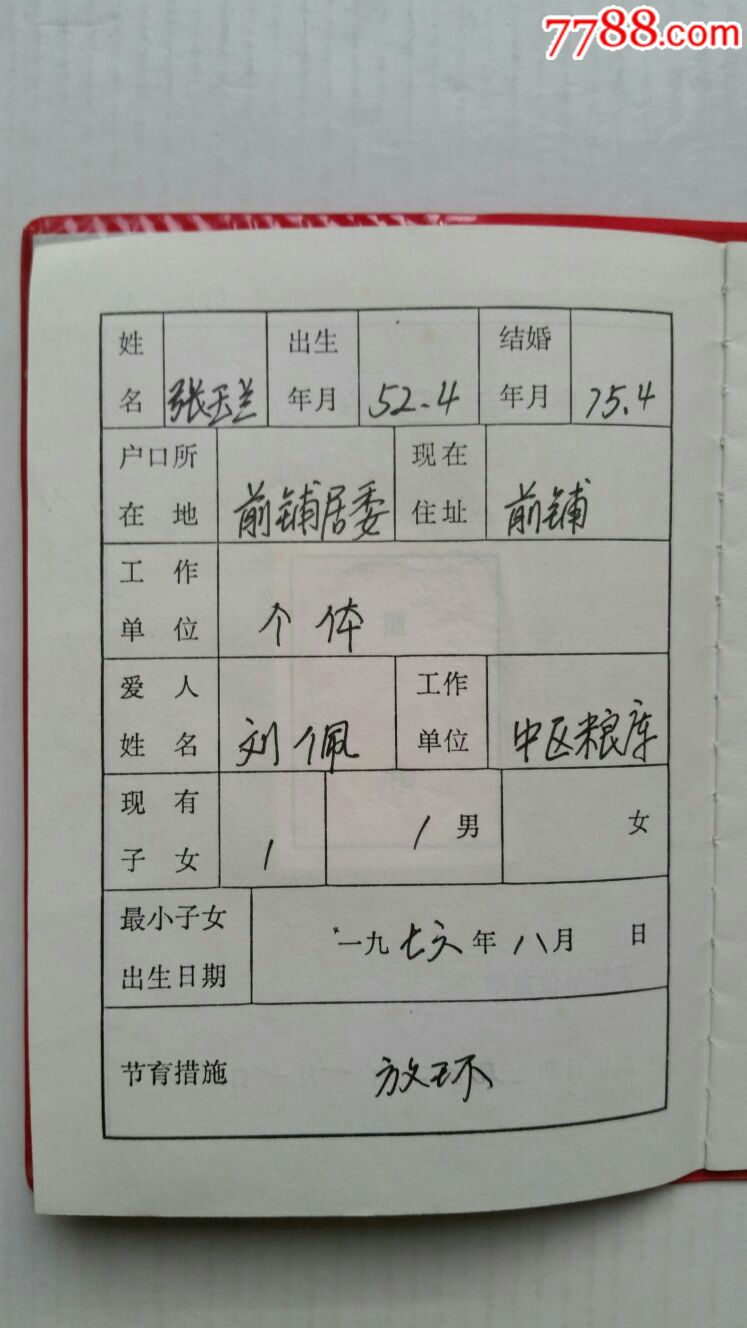 7788.com
姓名 张玉兰 出生年月 52.4 结婚年月 75.4
户口所在地 前铺居委 现在住址 前铺
工作单位 个体
爱人姓名 刘佩 工作单位 中区粮库
现有子女 1 1男 女
最小子女出生日期 一九七六年八月 日
节育措施 放环